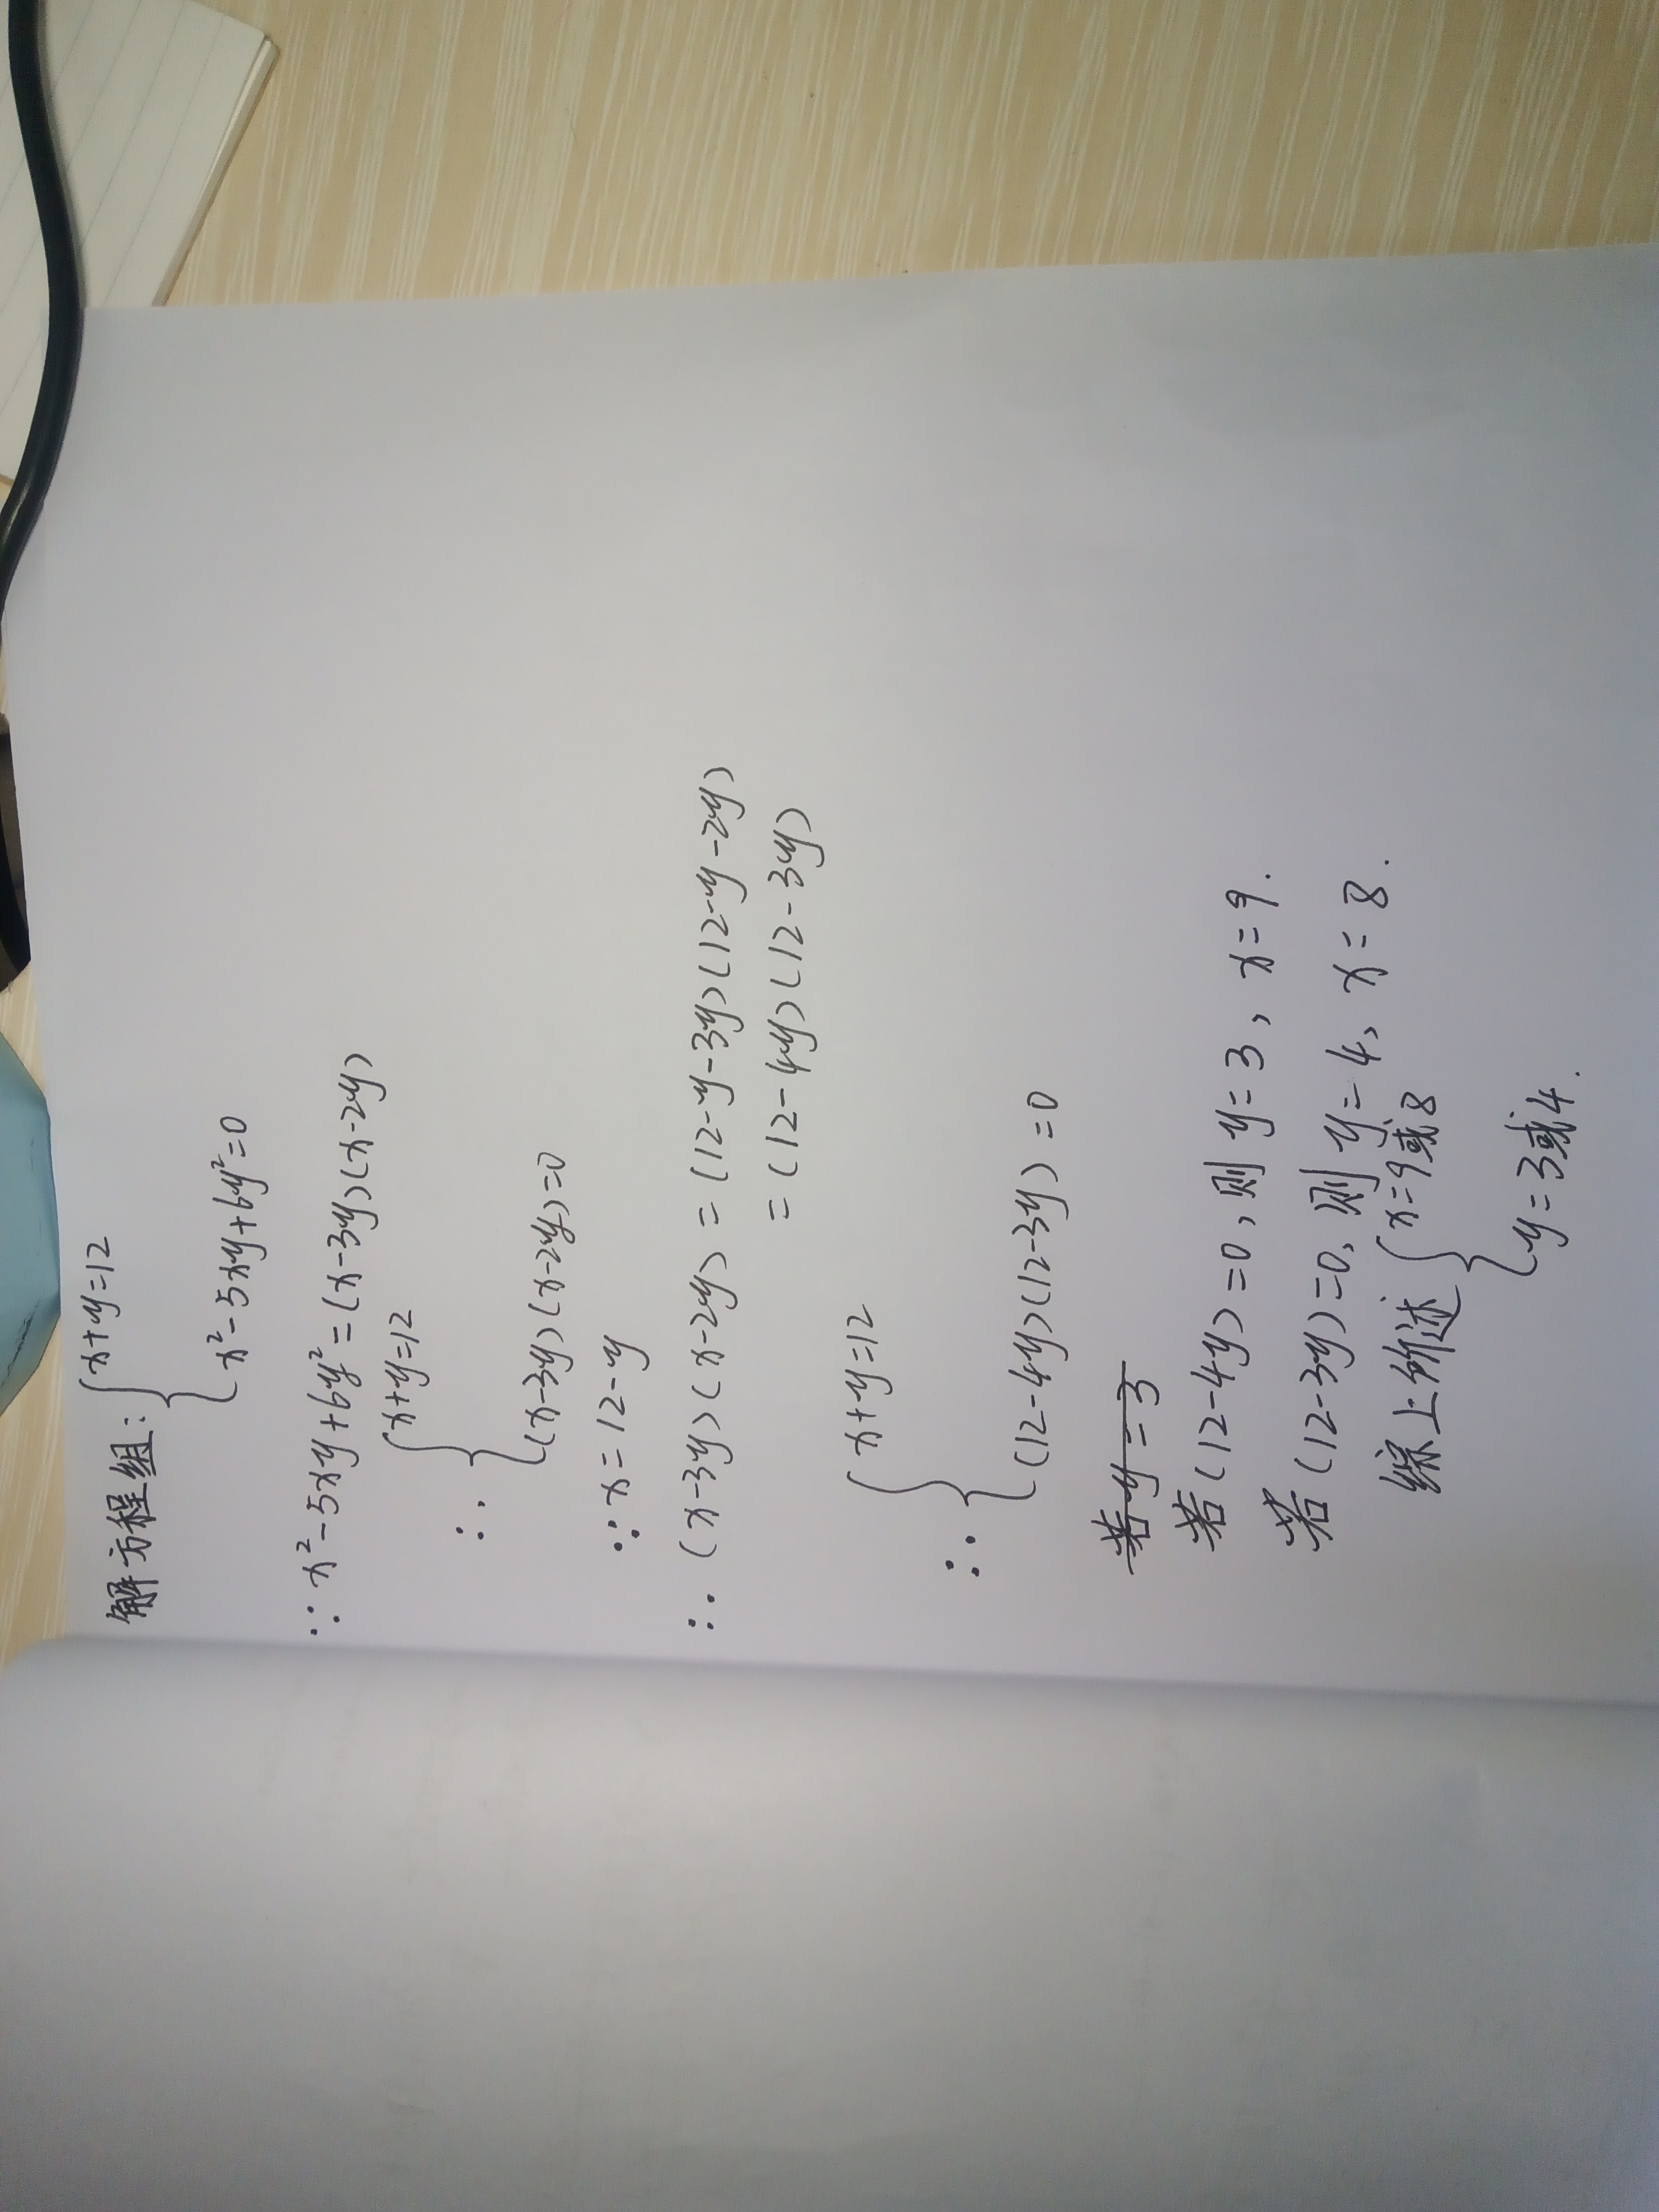 解方程组: { x+y=12
x²-5xy+6y²=0
∵ x²-5xy+6y²=(x-3y)(x-2y)
∴ { x+y=12
(x-3y)(x-2y)=0
∵ x=12-y
∴ (x-3y)(x-2y)=(12-y-3y)(12-y-2y)
=(12-4y)(12-3y)
∴ { x+y=12
(12-4y)(12-3y)=0
若y=3
若(12-4y)=0,则y=3,x=9.
若(12-3y)=0,则y=4,x=8.
综上所述 { x=9或8
y=3或4.